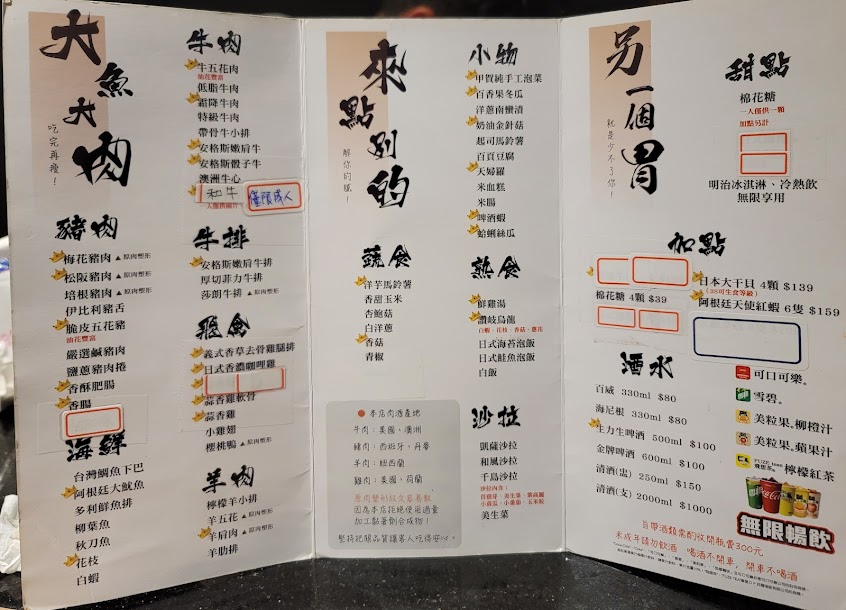 大魚大肉
吃完再瘦!
豬肉
梅花豬肉 ▲原肉整形
松阪豬肉 ▲原肉整形
培根豬肉 ▲原肉整形
伊比利豬舌
脆皮五花豬
油花豐富
嚴選鹹豬肉
鹽蔥豬肉捲
香酥肥腸
香腸
海鮮
台灣鯛魚下巴
阿根廷大魷魚
多利鮮魚排
柳葉魚
秋刀魚
花枝
白蝦
牛肉
牛五花肉
油花豐富
低脂牛肉
霜降牛肉
特級牛肉
帶骨牛小排
安格斯嫩肩牛
安格斯骰子牛
澳洲牛心
和牛 僅限成人
牛排
安格斯嫩肩牛排
厚切菲力牛排
莎朗牛排 ▲原肉整形
飛禽
義式香草去骨雞腿排
日式香濃咖哩雞
蒜香雞軟骨
蒜香雞
小雞翅
櫻桃鴨 ▲原肉整形
羊肉
檸檬羊小排
羊五花 ▲原肉整形
羊肩肉 ▲原肉整形
羊肋排
來點別的
解你的膩!
蔬食
洋芋馬鈴薯
香甜玉米
杏鮑菇
白洋蔥
香菇
青椒
● 本店肉酒產地
牛肉:美國、澳洲
豬肉:西班牙、丹麥
羊肉:紐西蘭
雞肉:美國、荷蘭
因為本店拒絕使用過量
加工黏著劑合成物!
堅持把關品質讓客人吃得安心。
小物
甲賀純手工泡菜
百香果冬瓜
洋蔥南蠻漬
奶油金針菇
起司馬鈴薯
百頁豆腐
天婦羅
米血糕
米腸
啤酒蝦
蛤蜊絲瓜
熟食
鮮雞湯
讚岐烏龍
白蝦、花枝、香菇、蔥花
日式海苔泡飯
日式鮭魚泡飯
白飯
沙拉
凱薩沙拉
和風沙拉
千島沙拉
沙拉內含:
美生菜
另一個胃
就是少不了你!
甜點
棉花糖
一人僅供一顆
加點另計
明治冰淇淋、冷熱飲
無限享用
加點
棉花糖 4顆 $39
日本大干貝 4顆 $139
(3S可生食等級)
阿根廷天使紅蝦 6隻 $159
酒水
百威 330ml $80
海尼根 330ml $80
生力生啤酒 500ml $100
金牌啤酒 600ml $100
清酒(盅) 250ml $150
清酒(支) 2000ml $1000
可口可樂。
雪碧。
美粒果。柳橙汁
美粒果。蘋果汁
檸檬紅茶
無限暢飲
自帶酒類需酌收開瓶費300元
未成年請勿飲酒 喝酒不開車,開車不喝酒